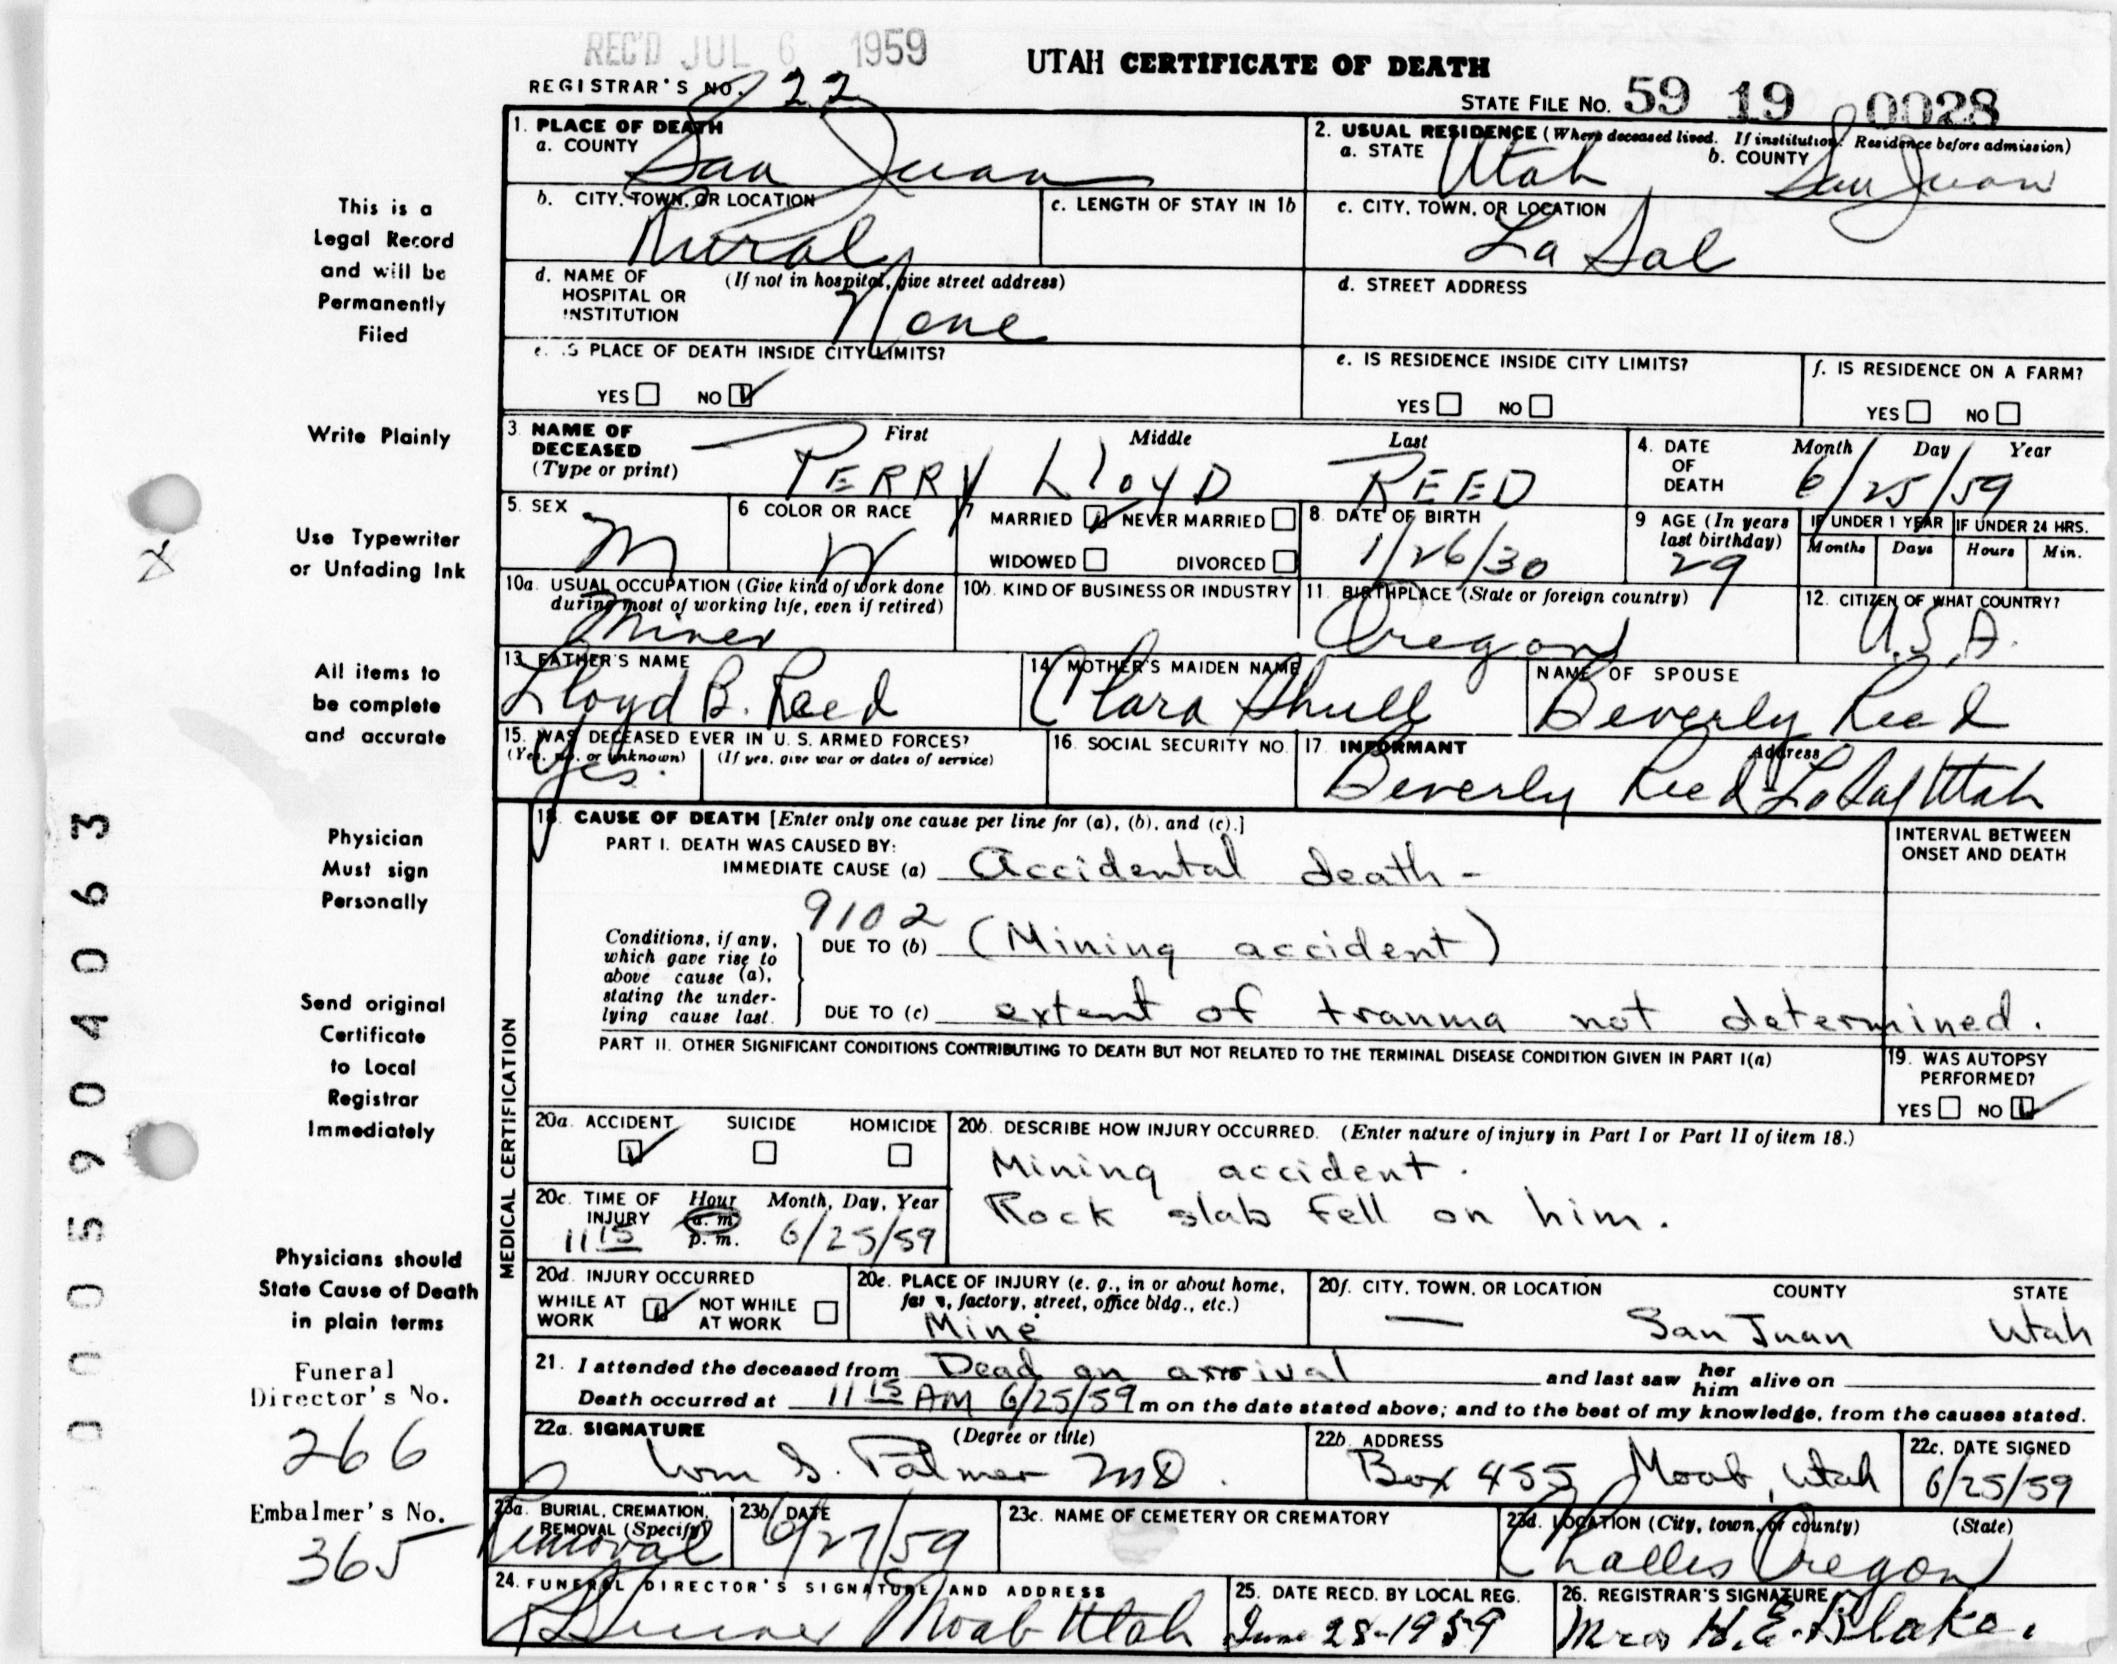 REC'D JUL 6 1959
UTAH CERTIFICATE OF DEATH
REGISTRAR'S NO. 22
STATE FILE NO. 59 19 0028
1. PLACE OF DEATH
a. COUNTY San Juan
2. USUAL RESIDENCE (Where deceased lived. If institution: Residence before admission)
a. STATE Utah b. COUNTY San Juan
b. CITY, TOWN, OR LOCATION Rural
c. LENGTH OF STAY IN 1b
c. CITY, TOWN, OR LOCATION La Sal
d. NAME OF HOSPITAL OR INSTITUTION (If not in hospital, give street address) None
d. STREET ADDRESS
e. IS PLACE OF DEATH INSIDE CITY LIMITS?
YES NO
e. IS RESIDENCE INSIDE CITY LIMITS?
YES NO
f. IS RESIDENCE ON A FARM?
YES NO
3. NAME OF DECEASED (Type or print) First Middle Last
PERRY LLOYD REED
4. DATE OF DEATH Month Day Year
6/25/59
5. SEX M
6 COLOR OR RACE W
7 MARRIED NEVER MARRIED
WIDOWED DIVORCED
8. DATE OF BIRTH 1/26/30
9 AGE (In years last birthday) 29
IF UNDER 1 YEAR IF UNDER 24 HRS.
Months Days Hours Min.
10a. USUAL OCCUPATION (Give kind of work done during most of working life, even if retired) Miner
10b. KIND OF BUSINESS OR INDUSTRY
11. BIRTHPLACE (State or foreign country) Oregon
12. CITIZEN OF WHAT COUNTRY? U.S.A.
13. FATHER'S NAME Lloyd B. Reed
14. MOTHER'S MAIDEN NAME Clara Shull
NAME OF SPOUSE Beverly Reed
15. WAS DECEASED EVER IN U. S. ARMED FORCES?
(Yes, no, or unknown) (If yes, give war or dates of service)
Yes.
16. SOCIAL SECURITY NO.
17. INFORMANT Address
Beverly Reed - La Sal Utah
18. CAUSE OF DEATH [Enter only one cause per line for (a), (b), and (c).]
INTERVAL BETWEEN ONSET AND DEATH
PART I. DEATH WAS CAUSED BY:
IMMEDIATE CAUSE (a) Accidental death -
9102
Conditions, if any, which gave rise to above cause (a), stating the underlying cause last.
DUE TO (b) (Mining accident)
DUE TO (c) extent of trauma not determined.
PART II. OTHER SIGNIFICANT CONDITIONS CONTRIBUTING TO DEATH BUT NOT RELATED TO THE TERMINAL DISEASE CONDITION GIVEN IN PART I(a)
19. WAS AUTOPSY PERFORMED?
YES NO
20a. ACCIDENT SUICIDE HOMICIDE
20b. DESCRIBE HOW INJURY OCCURRED. (Enter nature of injury in Part I or Part II of item 18.)
Mining accident.
Rock slab fell on him.
20c. TIME OF INJURY Hour Month, Day, Year
11 15 a. m. p. m. 6/25/59
20d. INJURY OCCURRED
WHILE AT WORK NOT WHILE AT WORK
20e. PLACE OF INJURY (e. g., in or about home, farm, factory, street, office bldg., etc.)
Mine
20f. CITY, TOWN, OR LOCATION COUNTY STATE
— San Juan Utah
21. I attended the deceased from Dead on arrival and last saw her him alive on
Death occurred at 11 15 AM 6/25/59 m on the date stated above; and to the best of my knowledge, from the causes stated.
22a. SIGNATURE (Degree or title)
Wm G. Palmer MD.
22b. ADDRESS
Box 455 Moab, Utah
22c. DATE SIGNED
6/25/59
23a. BURIAL, CREMATION, REMOVAL (Specify)
Removal
23b. DATE
6/27/59
23c. NAME OF CEMETERY OR CREMATORY
23d. LOCATION (City, town, or county) (State)
Oregon
24. FUNERAL DIRECTOR'S SIGNATURE AND ADDRESS
Moab Utah
25. DATE RECD. BY LOCAL REG.
June 28-1959
26. REGISTRAR'S SIGNATURE
Mrs H. E. Blake.
MEDICAL CERTIFICATION
This is a
Legal Record
and will be
Permanently
Filed
Write Plainly
Use Typewriter
or Unfading Ink
All items to
be complete
and accurate
Physician
Must sign
Personally
Send original
Certificate
to Local
Registrar
Immediately
Physicians should
State Cause of Death
in plain terms
Funeral
Director's No.
266
Embalmer's No.
365
0005904063